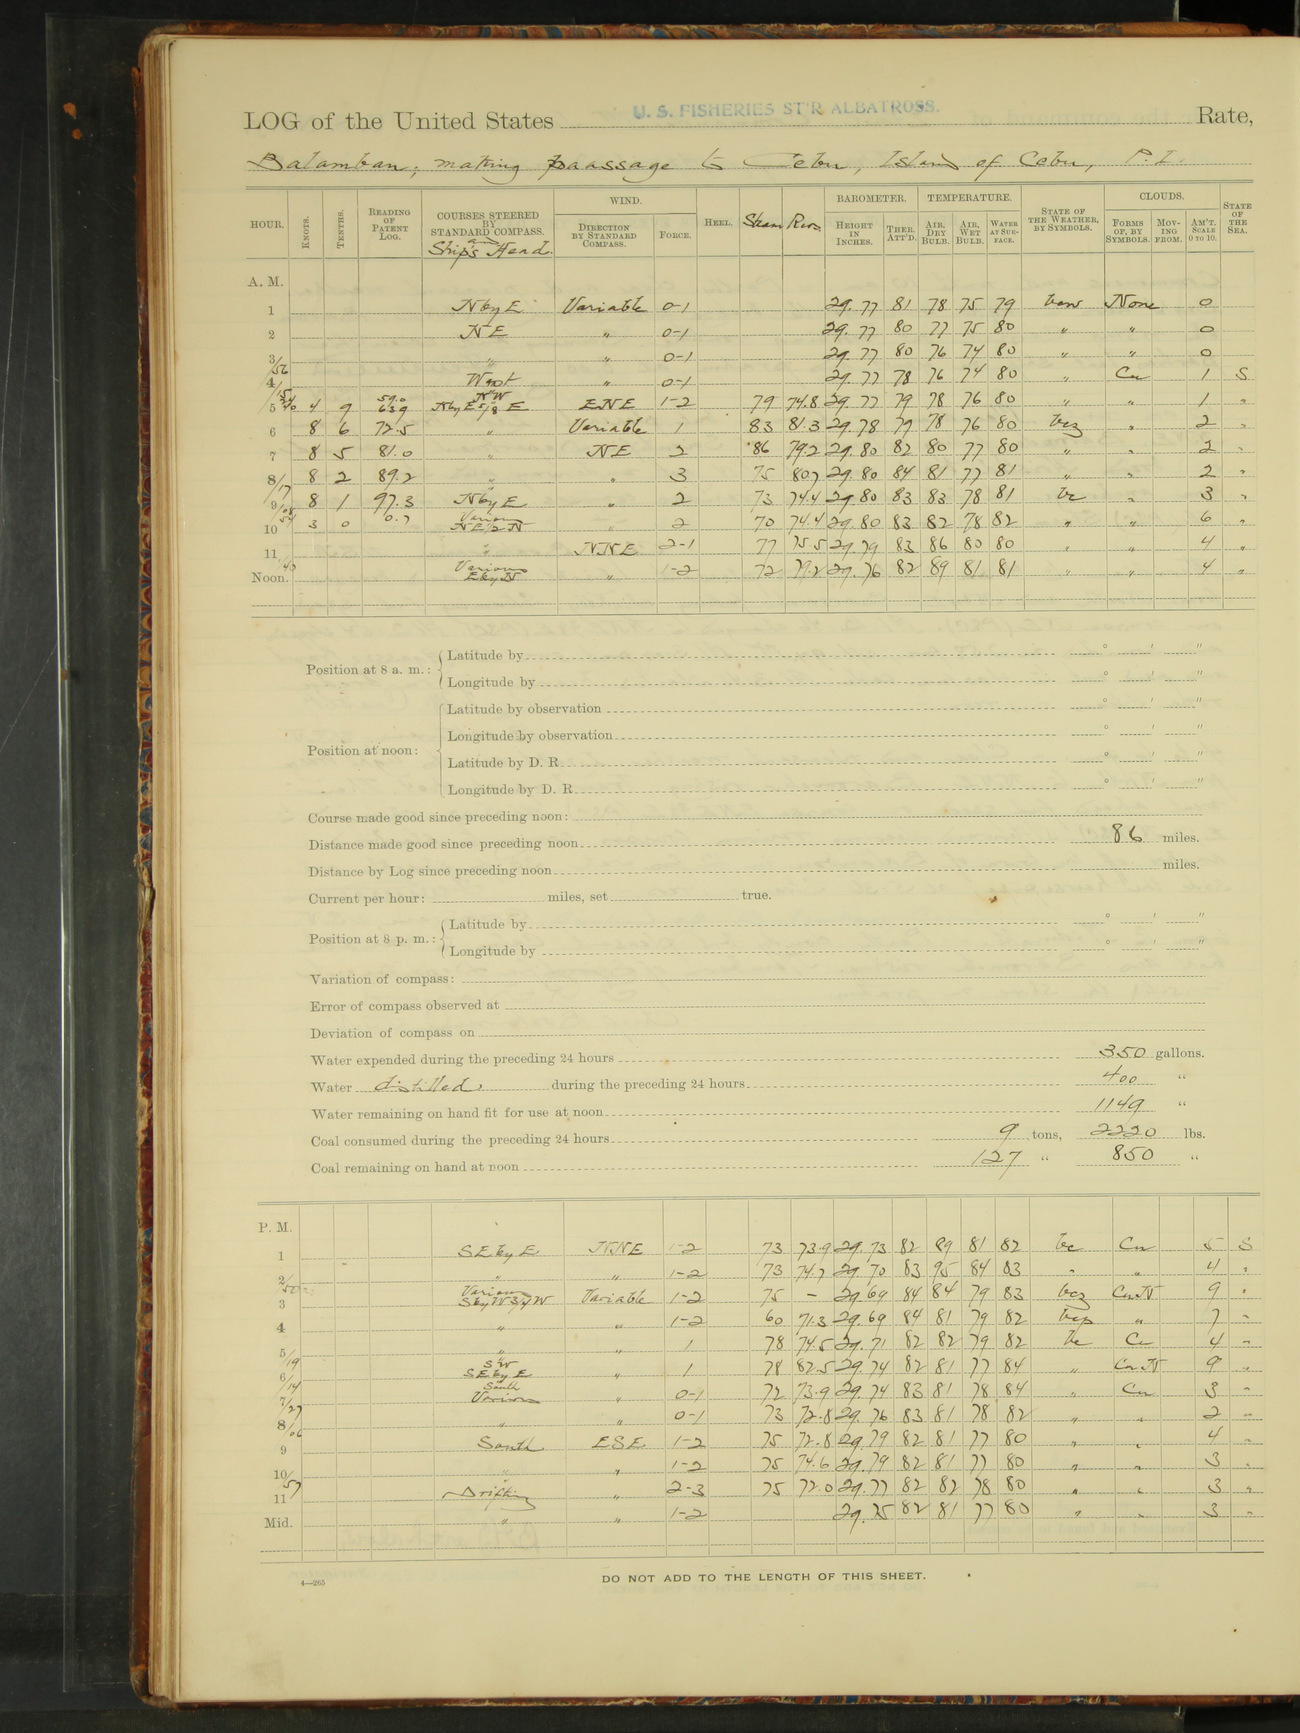 U. S. FISHERIES ST'R ALBATROSS.
LOG of the United States Rate,
Balamban; making paassage to Cebu, Island of Cebu, P.I.
HOUR. KNOTS. TENTHS. READING OF PATENT LOG. COURSES STEERED BY STANDARD COMPASS. and Ship's Head. WIND. DIRECTION BY STANDARD COMPASS. FORCE. HEEL. Steam Revs. BAROMETER. HEIGHT IN INCHES. THER. ATT'D. TEMPERATURE. AIR, DRY BULB. AIR, WET BULB. WATER AT SURFACE. STATE OF THE WEATHER, BY SYMBOLS. CLOUDS. FORMS OF, BY SYMBOLS. MOVING FROM. AM'T. SCALE 0 TO 10. STATE OF THE SEA.
A. M.
1 N by E Variable 0-1 29.77 81 78 75 79 None 0
2 NE " 0-1 29.77 80 77 75 80 " " 0
3 " " 0-1 29.77 80 76 74 80 " " 0
4 West " 0-1 29.77 78 76 74 80 " Cu 1 S
5 4 9 59.0 63.9 NW N by E 5/8 E ENE 1-2 79 74.8 29.77 79 78 76 80 " " 1 "
6 8 6 72.5 " Variable 1 83 81.3 29.78 79 78 76 80 bcz " 2 "
7 8 5 81.0 " NE 2 86 79.2 29.80 82 80 77 80 " " 2 "
8 8 2 89.2 " " 3 75 80.7 29.80 84 81 77 81 " " 2 "
9 8 1 97.3 N by E " 2 73 74.4 29.80 83 83 78 81 bc " 3 "
10 3 0 0.7 Various NE 1/2 N " 2 70 74.4 29.80 83 82 78 82 " " 6 "
11 " NNE 2-1 77 75.5 29.79 83 86 80 80 " " 4 "
Noon. Various E by N " 1-2 72 79.2 29.76 82 89 81 81 " " 4 "
Position at 8 a. m.: Latitude by ° ' "
Longitude by ° ' "
Position at noon: Latitude by observation ° ' "
Longitude by observation ° ' "
Latitude by D. R. ° ' "
Longitude by D. R. ° ' "
Course made good since preceding noon:
Distance made good since preceding noon 86 miles.
Distance by Log since preceding noon miles.
Current per hour: miles, set true.
Position at 8 p. m.: Latitude by ° ' "
Longitude by ° ' "
Variation of compass:
Error of compass observed at
Deviation of compass on
Water expended during the preceding 24 hours 350 gallons.
Water distilled, during the preceding 24 hours 400 "
Water remaining on hand fit for use at noon 1149 "
Coal consumed during the preceding 24 hours 9 tons, 2220 lbs.
Coal remaining on hand at noon 127 " 850 "
P. M.
1 SE by E NNE 1-2 73 73.9 29.73 82 89 81 82 bc Cu 5 S
2 " " 1-2 73 74.7 29.70 83 95 84 83 " " 4 "
3 Various S by W 3/4 W Variable 1-2 75 — 29.69 84 84 79 83 bcz Cu.N 9 "
4 " " 1-2 60 71.3 29.69 84 81 79 82 bcp " 7 "
5 " " 1 78 74.5 29.71 82 82 79 82 bc 4 "
6 SW SE by E " 1 78 82.5 29.74 82 81 77 84 " Cu N 9 "
7 South Various " 0-1 72 73.9 29.74 83 81 78 84 " Cu 3 "
8 " " 0-1 73 72.8 29.76 83 81 78 82 " " 2 "
9 South ESE 1-2 75 72.8 29.79 82 81 77 80 " " 4 "
10 " " 1-2 75 74.6 29.79 82 81 77 80 " " 3 "
11 Drifting " 2-3 75 72.0 29.77 82 82 78 80 " " 3 "
Mid. " " 1-2 29.75 82 81 77 80 " " 3 "
4—265
DO NOT ADD TO THE LENGTH OF THIS SHEET.